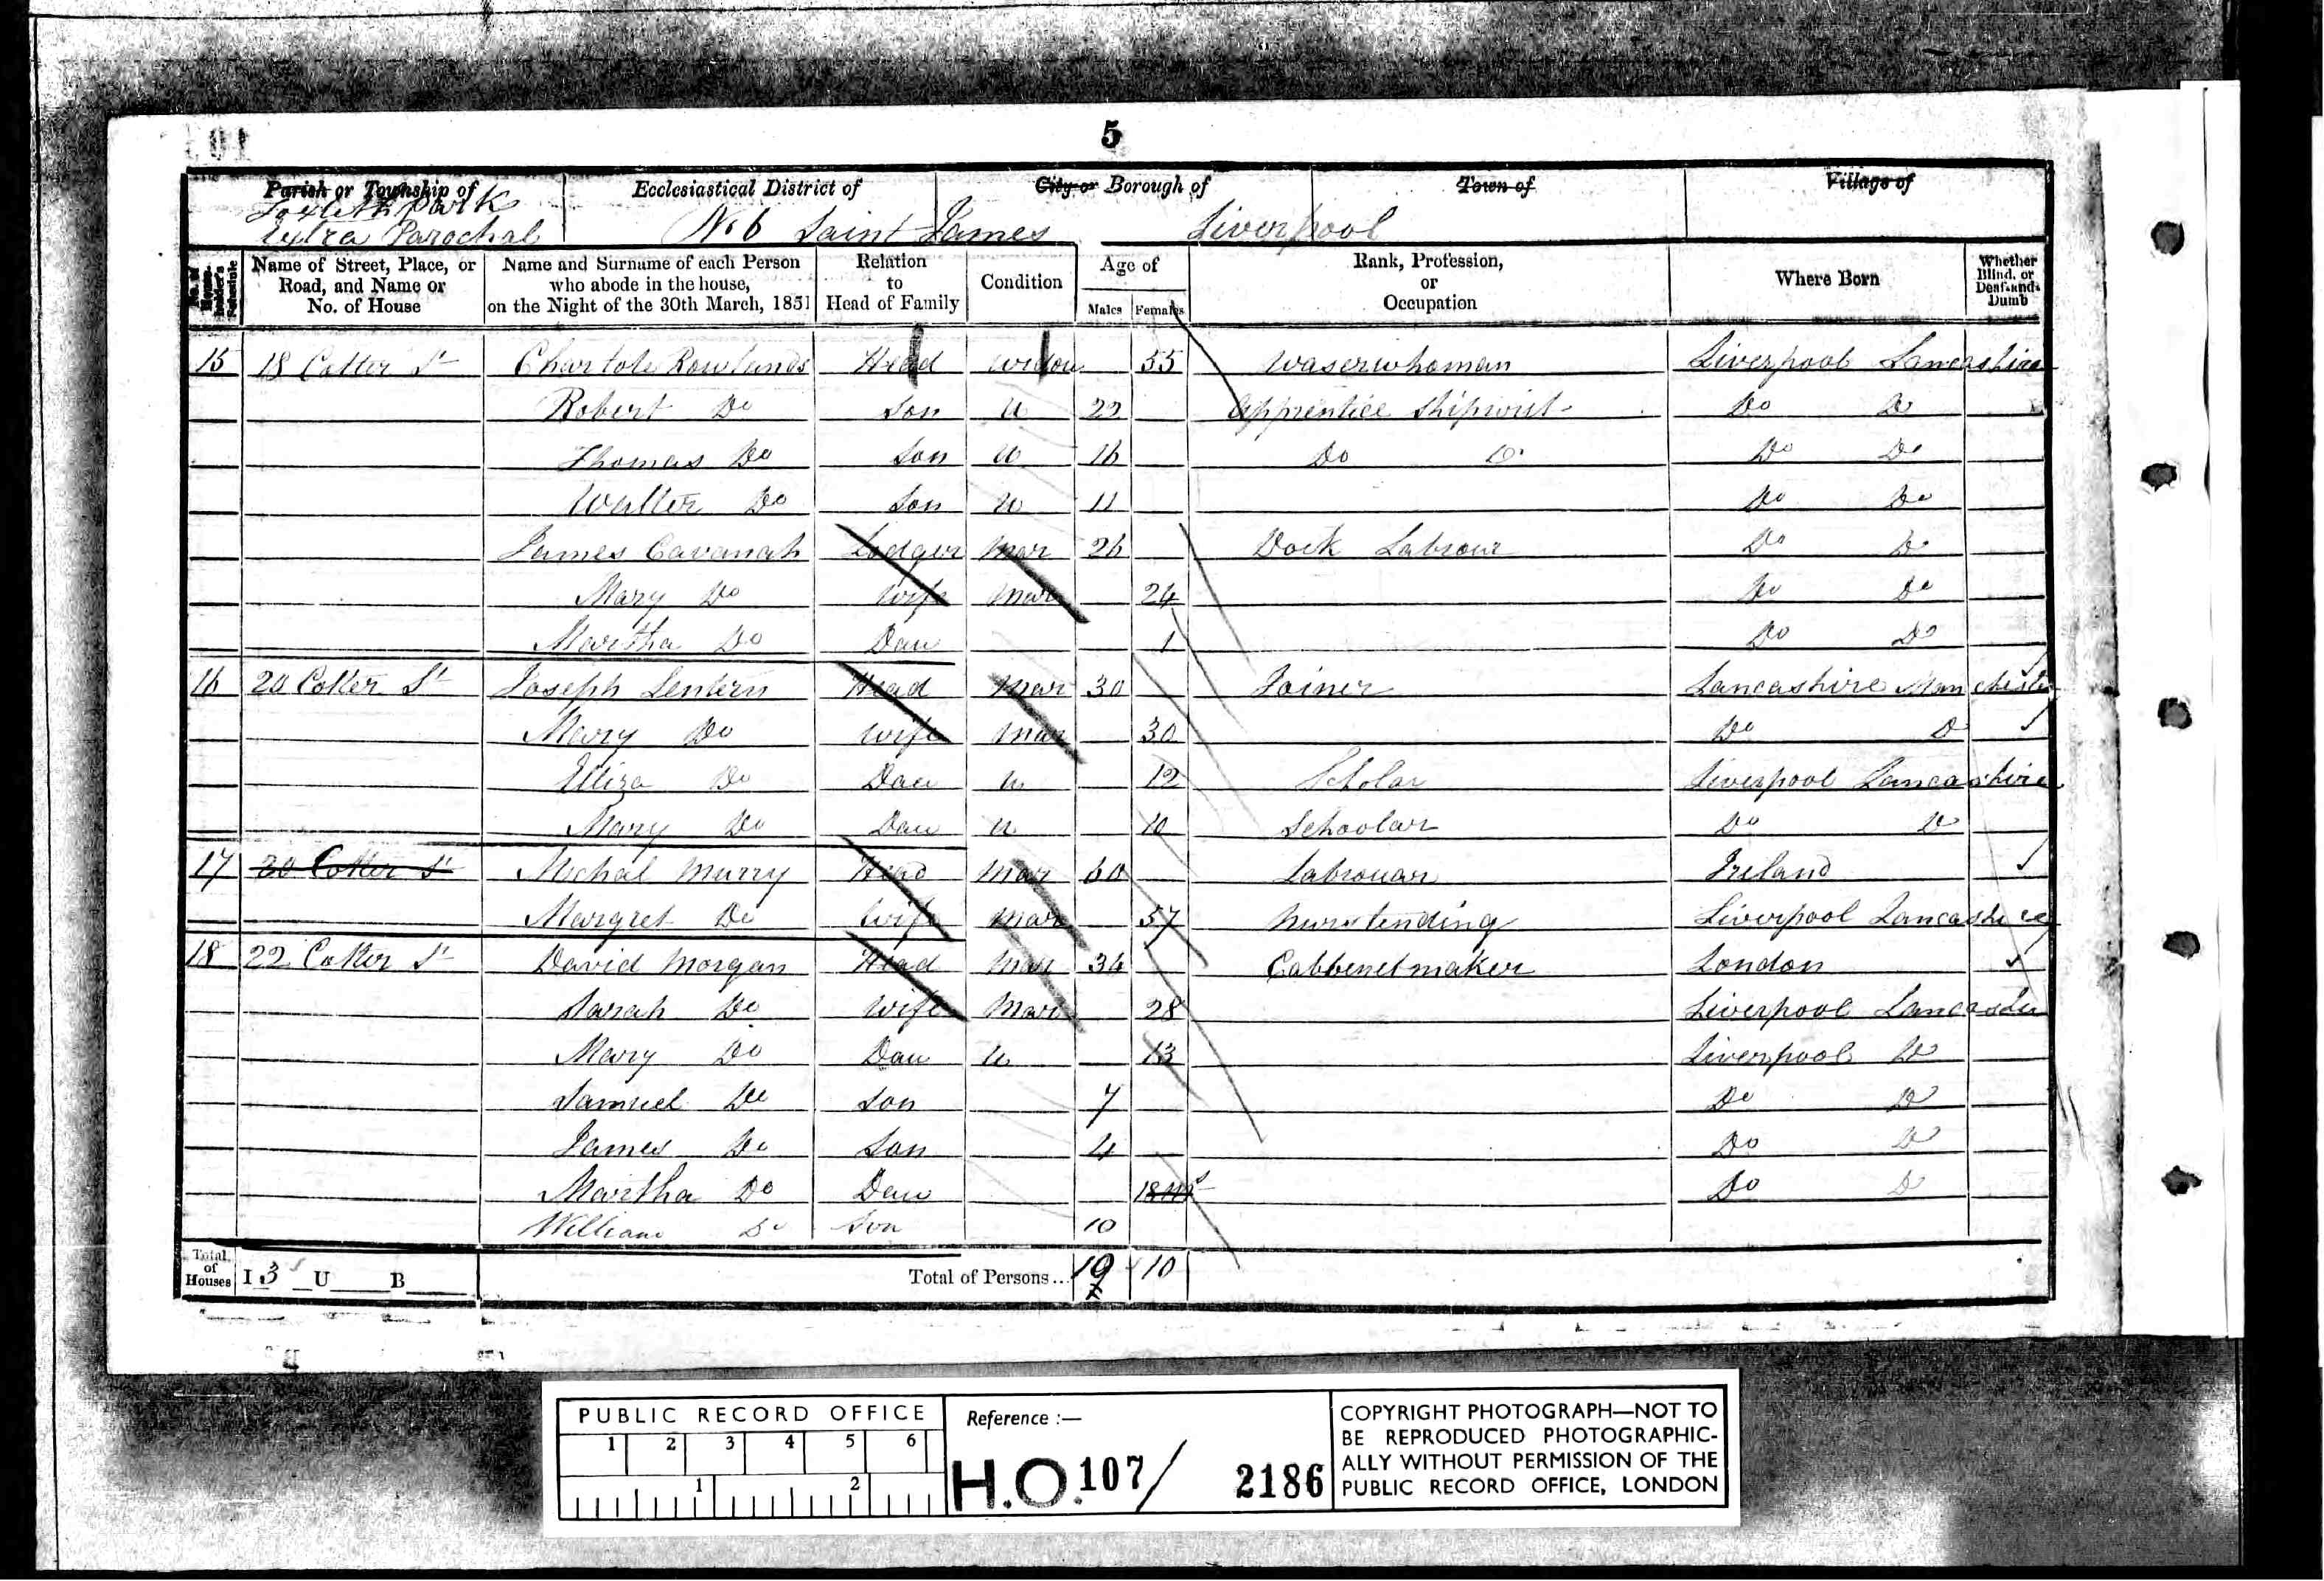 5
Parish or Township of Ecclesiastical District of City or Borough of Town of Village of
Toxteth Park
Extra Parochal No 6 Saint James Liverpool
No. of House-holder's Schedule Name of Street, Place, or Road, and Name or No. of House Name and Surname of each Person who abode in the house, on the Night of the 30th March, 1851 Relation to Head of Family Condition Age of Males Females Rank, Profession, or Occupation Where Born Whether Blind, or Deaf-and-Dumb
15 18 Cotter St Charlote Rowlands Head widow 55 waserwhoman Liverpool Lancashire
Robert Do Son U 22 Apprentice Shipwist Do Do
Thomas Do Son U 16 Do Do Do Do
Walter Do Son U 11 Do Do
James Cavanah Lodger Mar 26 Dock Labrour Do Do
Mary Do Wife Mar 24 Do Do
Martha Do Dau 1 Do Do
16 20 Cotter St Joseph Lentern Head Mar 30 Joiner Lancashire Manchester
Mary Do Wife Mar 30 Do Do
Eliza Do Dau U 12 Scholar Liverpool Lancashire
Mary Do Dau U 10 Schoolar Do Do
17 20 Cotter St Michal Murry Head Mar 60 Labrouar Ireland
Margret Do Wife Mar 57 Nurstending Liverpool Lancashire
18 22 Cotter St David Morgan Head Mar 34 Cabbenetmaker London
Sarah Do Wife Mar 28 Liverpool Lancashire
Mary Do Dau U 13 Liverpool Do
Samuel Do Son 7 Do Do
James Do Son 4 Do Do
Martha Do Dau 18 Ms Do Do
William Do Son 10
Total of Houses I 3 U B Total of Persons... 10
PUBLIC RECORD OFFICE
1 2 3 4 5 6
1 2
Reference :—
H.O. 107/ 2186
COPYRIGHT PHOTOGRAPH—NOT TO
BE REPRODUCED PHOTOGRAPHIC-
ALLY WITHOUT PERMISSION OF THE
PUBLIC RECORD OFFICE, LONDON